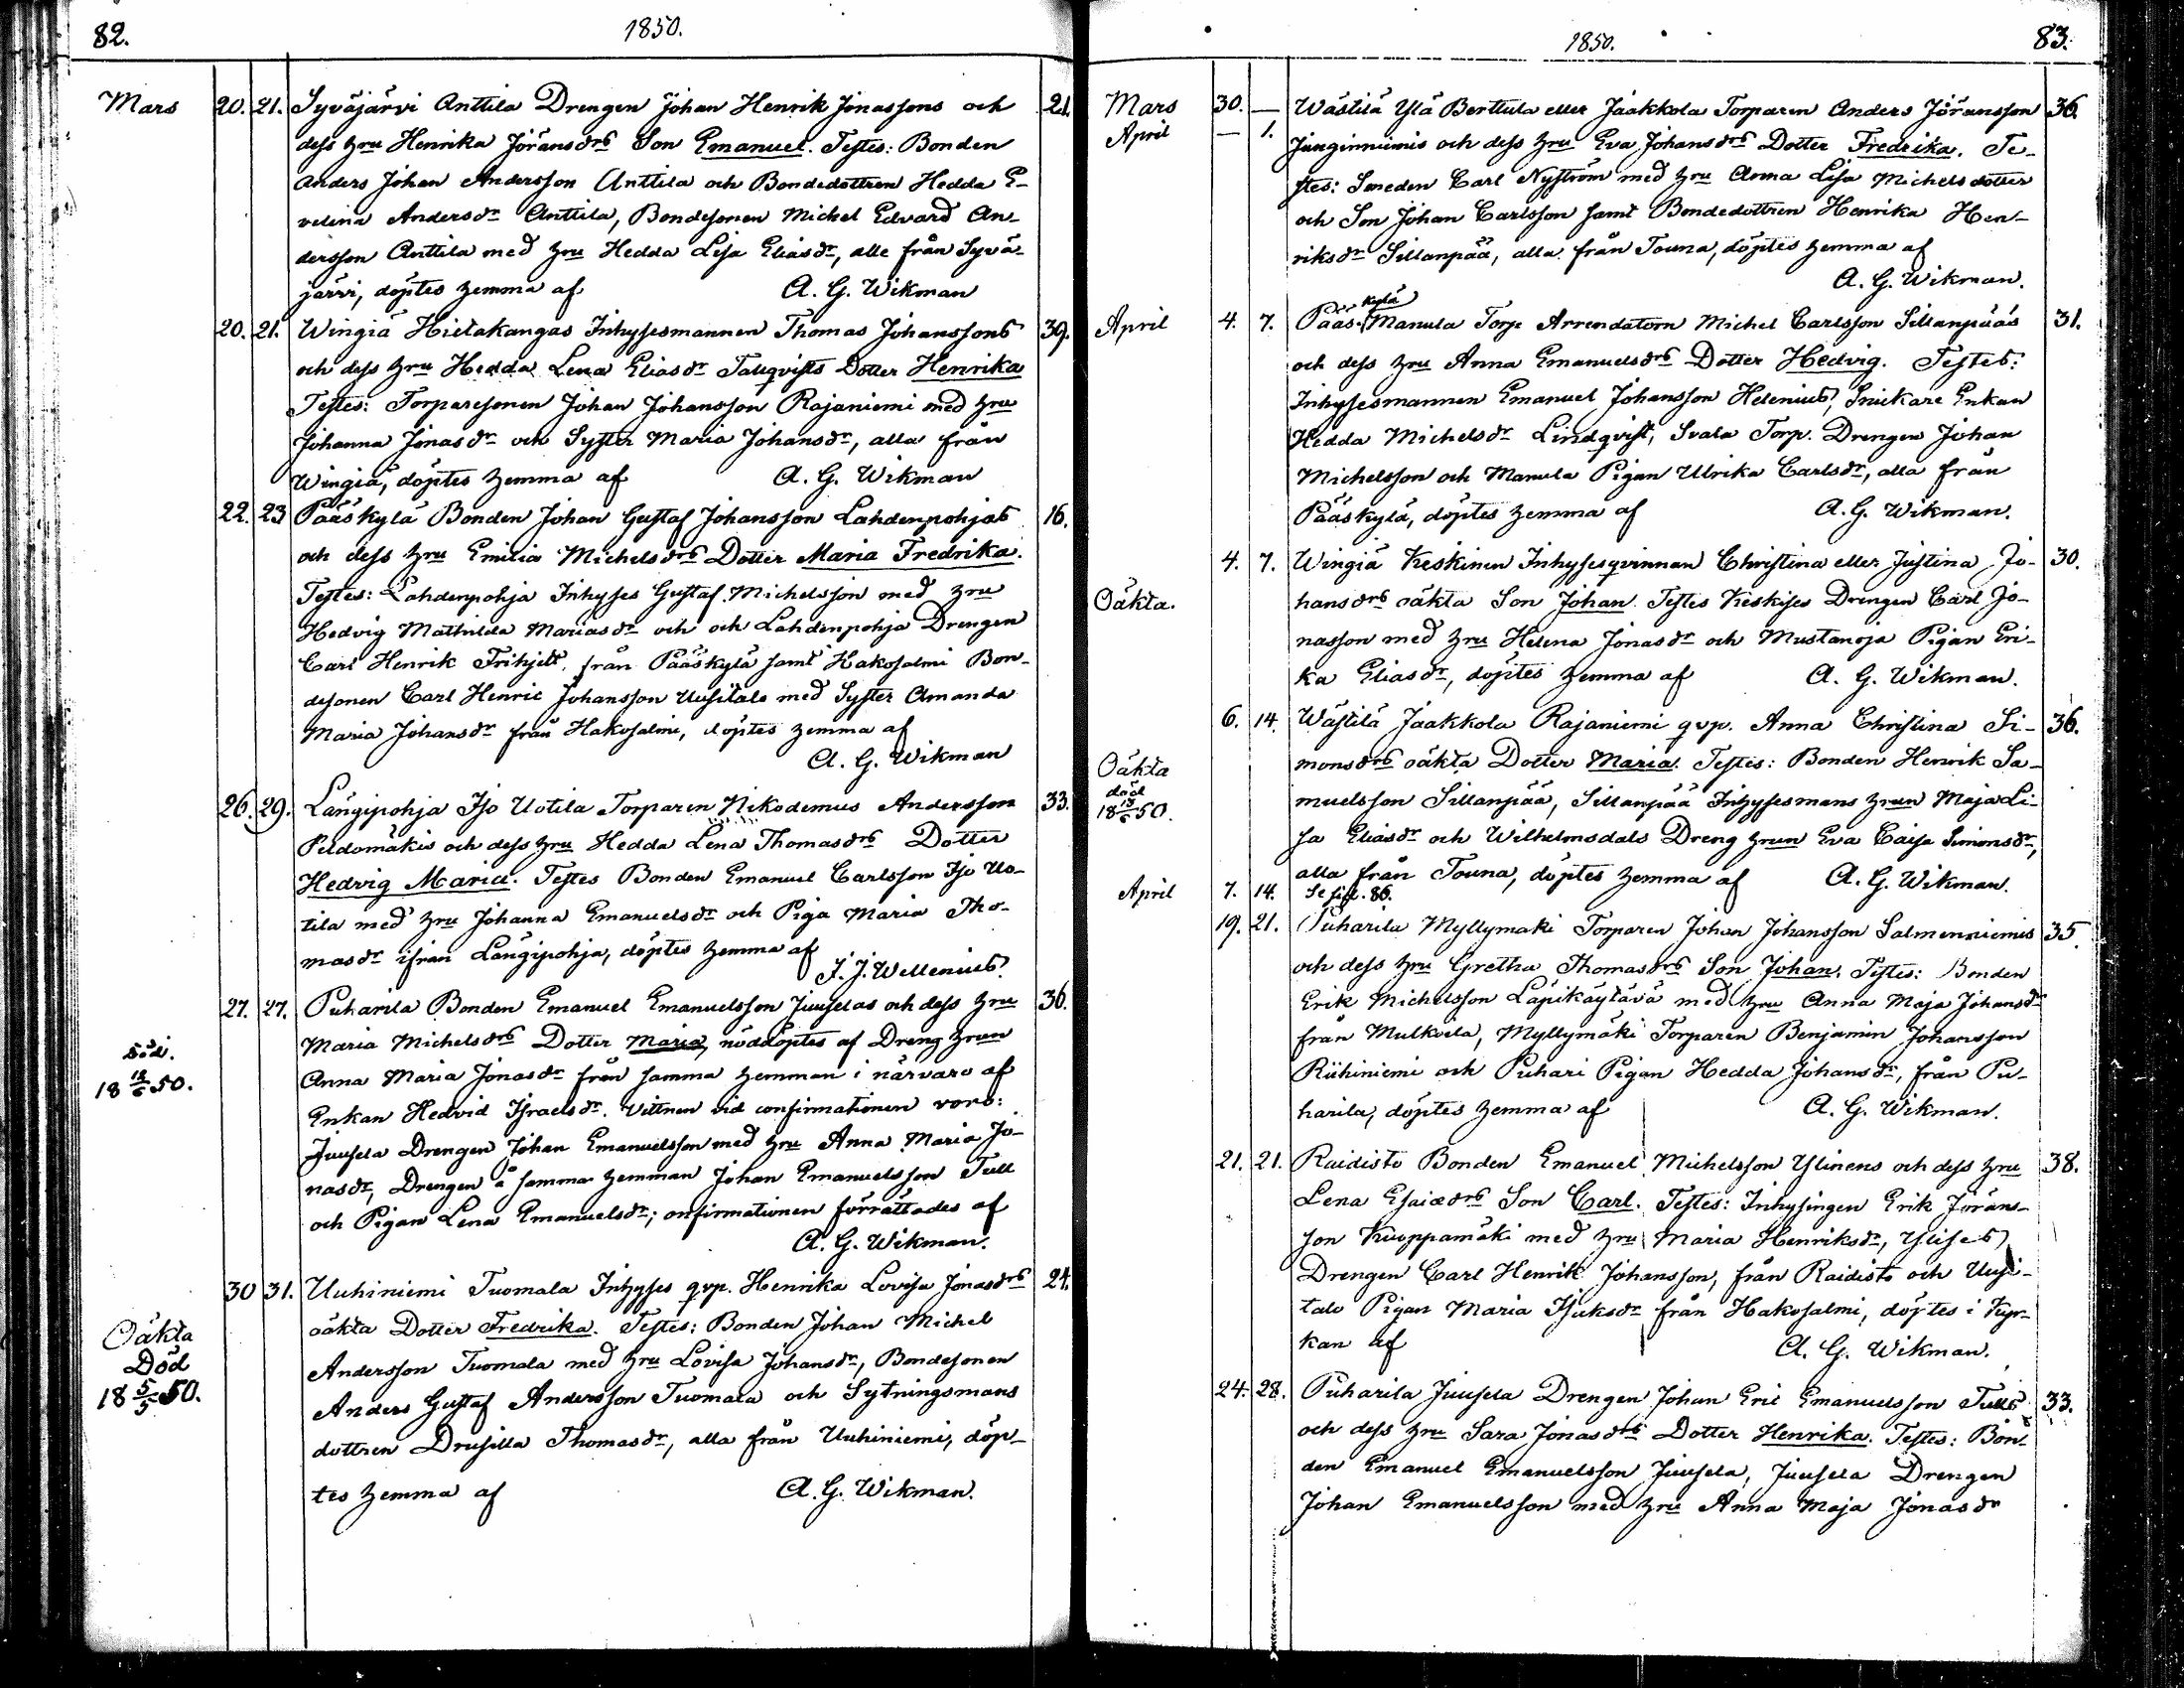 82.
1850.
Mars 20. 21. Syväjärvi Anttila Drengen Johan Henrik Jonassons och 21.
dess hru Henrika Jöransdrs Son Emanuel. Testes: Bonden
Anders Johan Andersson Anttila och Bondedottren Hedda E-
velina Andersdr Anttila, Bondesonen Michel Edvard An-
dersson Anttila med hru Hedda Lisa Eliasdr, alle från Syvä-
järvi, döptes hemma af A. G. Wikman
20. 21. Wingiä Hietakangas Inhysesmannen Thomas Johanssons 39.
och dess hru Hedda Lena Eliasdr Taliqvists Dotter Henrika
Testes: Torparesonen Johan Johansson Rajaniemi med hru
Johanna Jonasdr och Syster Maria Johansdr, alla från
Wingiä, döptes hemma af A. G. Wikman
22. 23 Pääskylä Bonden Johan Gustaf Johansson Lahdenpohjas 16.
och dess hru Emilia Michelsdrs Dotter Maria Fredrika.
Testes: Lahdenpohja Inhyses Gustaf Michelsson med hru
Hedvig Mathilda Mariasdr och och Lahdenpohja Drengen
Carl Henrik Frihjelt från Pääskylä samt Hakosalmi Bon-
desonen Carl Henric Johansson Uusitalo med Syster Amanda
Maria Johansdr från Hakosalmi, döptes hemma af
A. G. Wikman
26. 29. Längipohja Iso Uotila Torparen Nikodemus Andersson 33.
Peldomäkis och dess hru Hedda Lena Thomasdrs Dotter
Hedvig Maria. Testes Bonden Emanuel Carlsson Iso Uo-
tila med hru Johanna Emanuelsdr och Piga Maria Tho-
masdr ifrån Längipohja, döptes hemma af
J. J. Wellenius.
27. 27. Puharila Bonden Emanuel Emanuelsson Juuselas och dess hru 36.
Maria Michelsdrs Dotter Maria, nöddöptes af Dreng hrun
död.
18 13/6 50.
Anna Maria Jonasdr från samma hemman i närvaro af
Enkan Hedvid Israelsdr. Vittnen vid confirmationen voro:
Juusela Drengen Johan Emanuelsson med hru Anna Maria Jo-
nasdr, Drengen å samma hemman Johan Emanuelsson Tull
och Pigan Lena Emanuelsdr; onfirmationen förrättades af
A. G. Wikman.
30 31. Uuhiniemi Tuomala Inhyses qvp. Henrika Lovisa Jonasdrs 24.
Oäkta
Död
18 5/5 50.
oäkta Dotter Fredrika. Testes: Bonden Johan Michel
Andersson Tuomala med hru Lovisa Johansdr, Bondesonen
Anders Gustaf Andersson Tuomala och Sytningsmans
dottren Drusilla Thomasdr, alla från Uuhiniemi, döp-
tes hemma af A. G. Wikman.
1850.
83.
Mars 30. — Wästilä Ylä Berttula eller Jaakkola Torparen Anders Jöransson 36.
April — 1. Janginniemis och dess hru Eva Johansdrs Dotter Fredrika. Te-
stes: Smeden Carl Nyström med hru Anna Lisa Michelsdotter
och Son Johan Carlsson samt Bondedottren Henrika Hen-
riksdr Sillanpää, alla från Touna, döptes hemma af
A. G. Wikman.
April 4. 7. Pääskylä Manula Torp Arrendatorn Michel Carlsson Sillanpääs 31.
och dess hru Anna Emanuelsdrs Dotter Hedvig. Testes:
Inhysesmannen Emanuel Johansson Helenius, Snickare Enkan
Hedda Michelsdr Lindqvist, Svala Torp. Drengen Johan
Michelsson och Manula Pigan Ulrika Carlsdr, alla från
Pääskylä, döptes hemma af A. G. Wikman.
4. 7. Wingiä Keskinen Inhysesqvinnan Christina eller Justina Jo- 30.
Oäkta.
hansdrs oäkta Son Johan. Testes Keskises Drengen Carl Jo-
nasson med hru Helena Jonasdr och Mustanoja Pigan Eri-
ka Eliasdr, döptes hemma af A. G. Wikman.
6. 14. Wästilä Jaakkola Rajaniemi qvp. Anna Christina Si- 36.
Oäkta
död
18 13/6 50.
monsdrs oäkta Dotter Maria. Testes: Bonden Henrik Sa-
muelsson Sillanpää, Sillanpää Inhysesmans hrun Maja Li-
sa Eliasdr och Wilhelmsdals Dreng hrun Eva Caisa Simonsdr,
alla från Touna, döptes hemma af A. G. Wikman.
April 7. 14. Se sid. 86.
19. 21. Puharila Myllymäki Torparen Johan Johansson Salmenniemis 35.
och dess hru Gretha Thomasdrs Son Johan. Testes: Bonden
Erik Michelsson Läpikäytävä med hru Anna Maja Johansdr
från Mulkoila, Myllymäki Torparen Benjamin Johansson
Riihiniemi och Puhari Pigan Hedda Johansdr, från Pu-
harila, döptes hemma af A. G. Wikman.
21. 21. Raidisto Bonden Emanuel Michelsson Ylinens och dess hru 38.
Lena Esaiædrs Son Carl. Testes: Inhysingen Erik Jörans-
son Kuoppamäki med hru Maria Henriksdr, Ylises
Drengen Carl Henrik Johansson, från Raidisto och Uusi-
talo Pigan Maria Isaksdr från Hakosalmi, döptes i Kyr-
kan af A. G. Wikman.
24. 28. Puharila Juusela Drengen Johan Eric Emanuelsson Tulls 33.
och dess hru Sara Jonasdrs Dotter Henrika. Testes: Bon-
den Emanuel Emanuelsson Juusela, Juusela Drengen
Johan Emanuelsson med hru Anna Maja Jonasdr